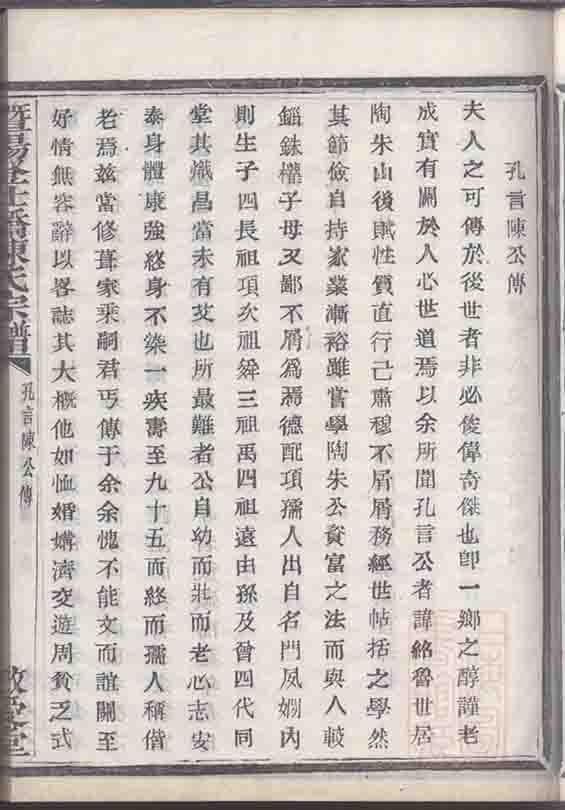 孔言陳公傳
夫人之可傳於後世者非必俊偉奇傑也卽一鄉之醇謹老
成實有關於人心世道焉以余所聞孔言公者諱銘魯世居
陶朱山後賦性質直行己肅穆不屑屑務經世帖括之學然
其節儉自持家業漸裕雖嘗學陶朱公資富之法而與人較
錙銖權子母又鄙不屑爲焉德配項孺人出自名門夙嫻內
則生子四長祖項次祖舜三祖禹四祖遠由孫及曾四代同
堂其熾昌當未有艾也所最難者公自幼而壯而老心志安
泰身體康強終身不染一疾壽至九十五而終而孺人稱偕
老焉茲當修葺家乘嗣君丐傳于余余愧不能文而誼關至
好情無容辭以畧誌其大概他如恤婚媾濟交遊周貧乏式
陳氏宗譜
孔言陳公傳